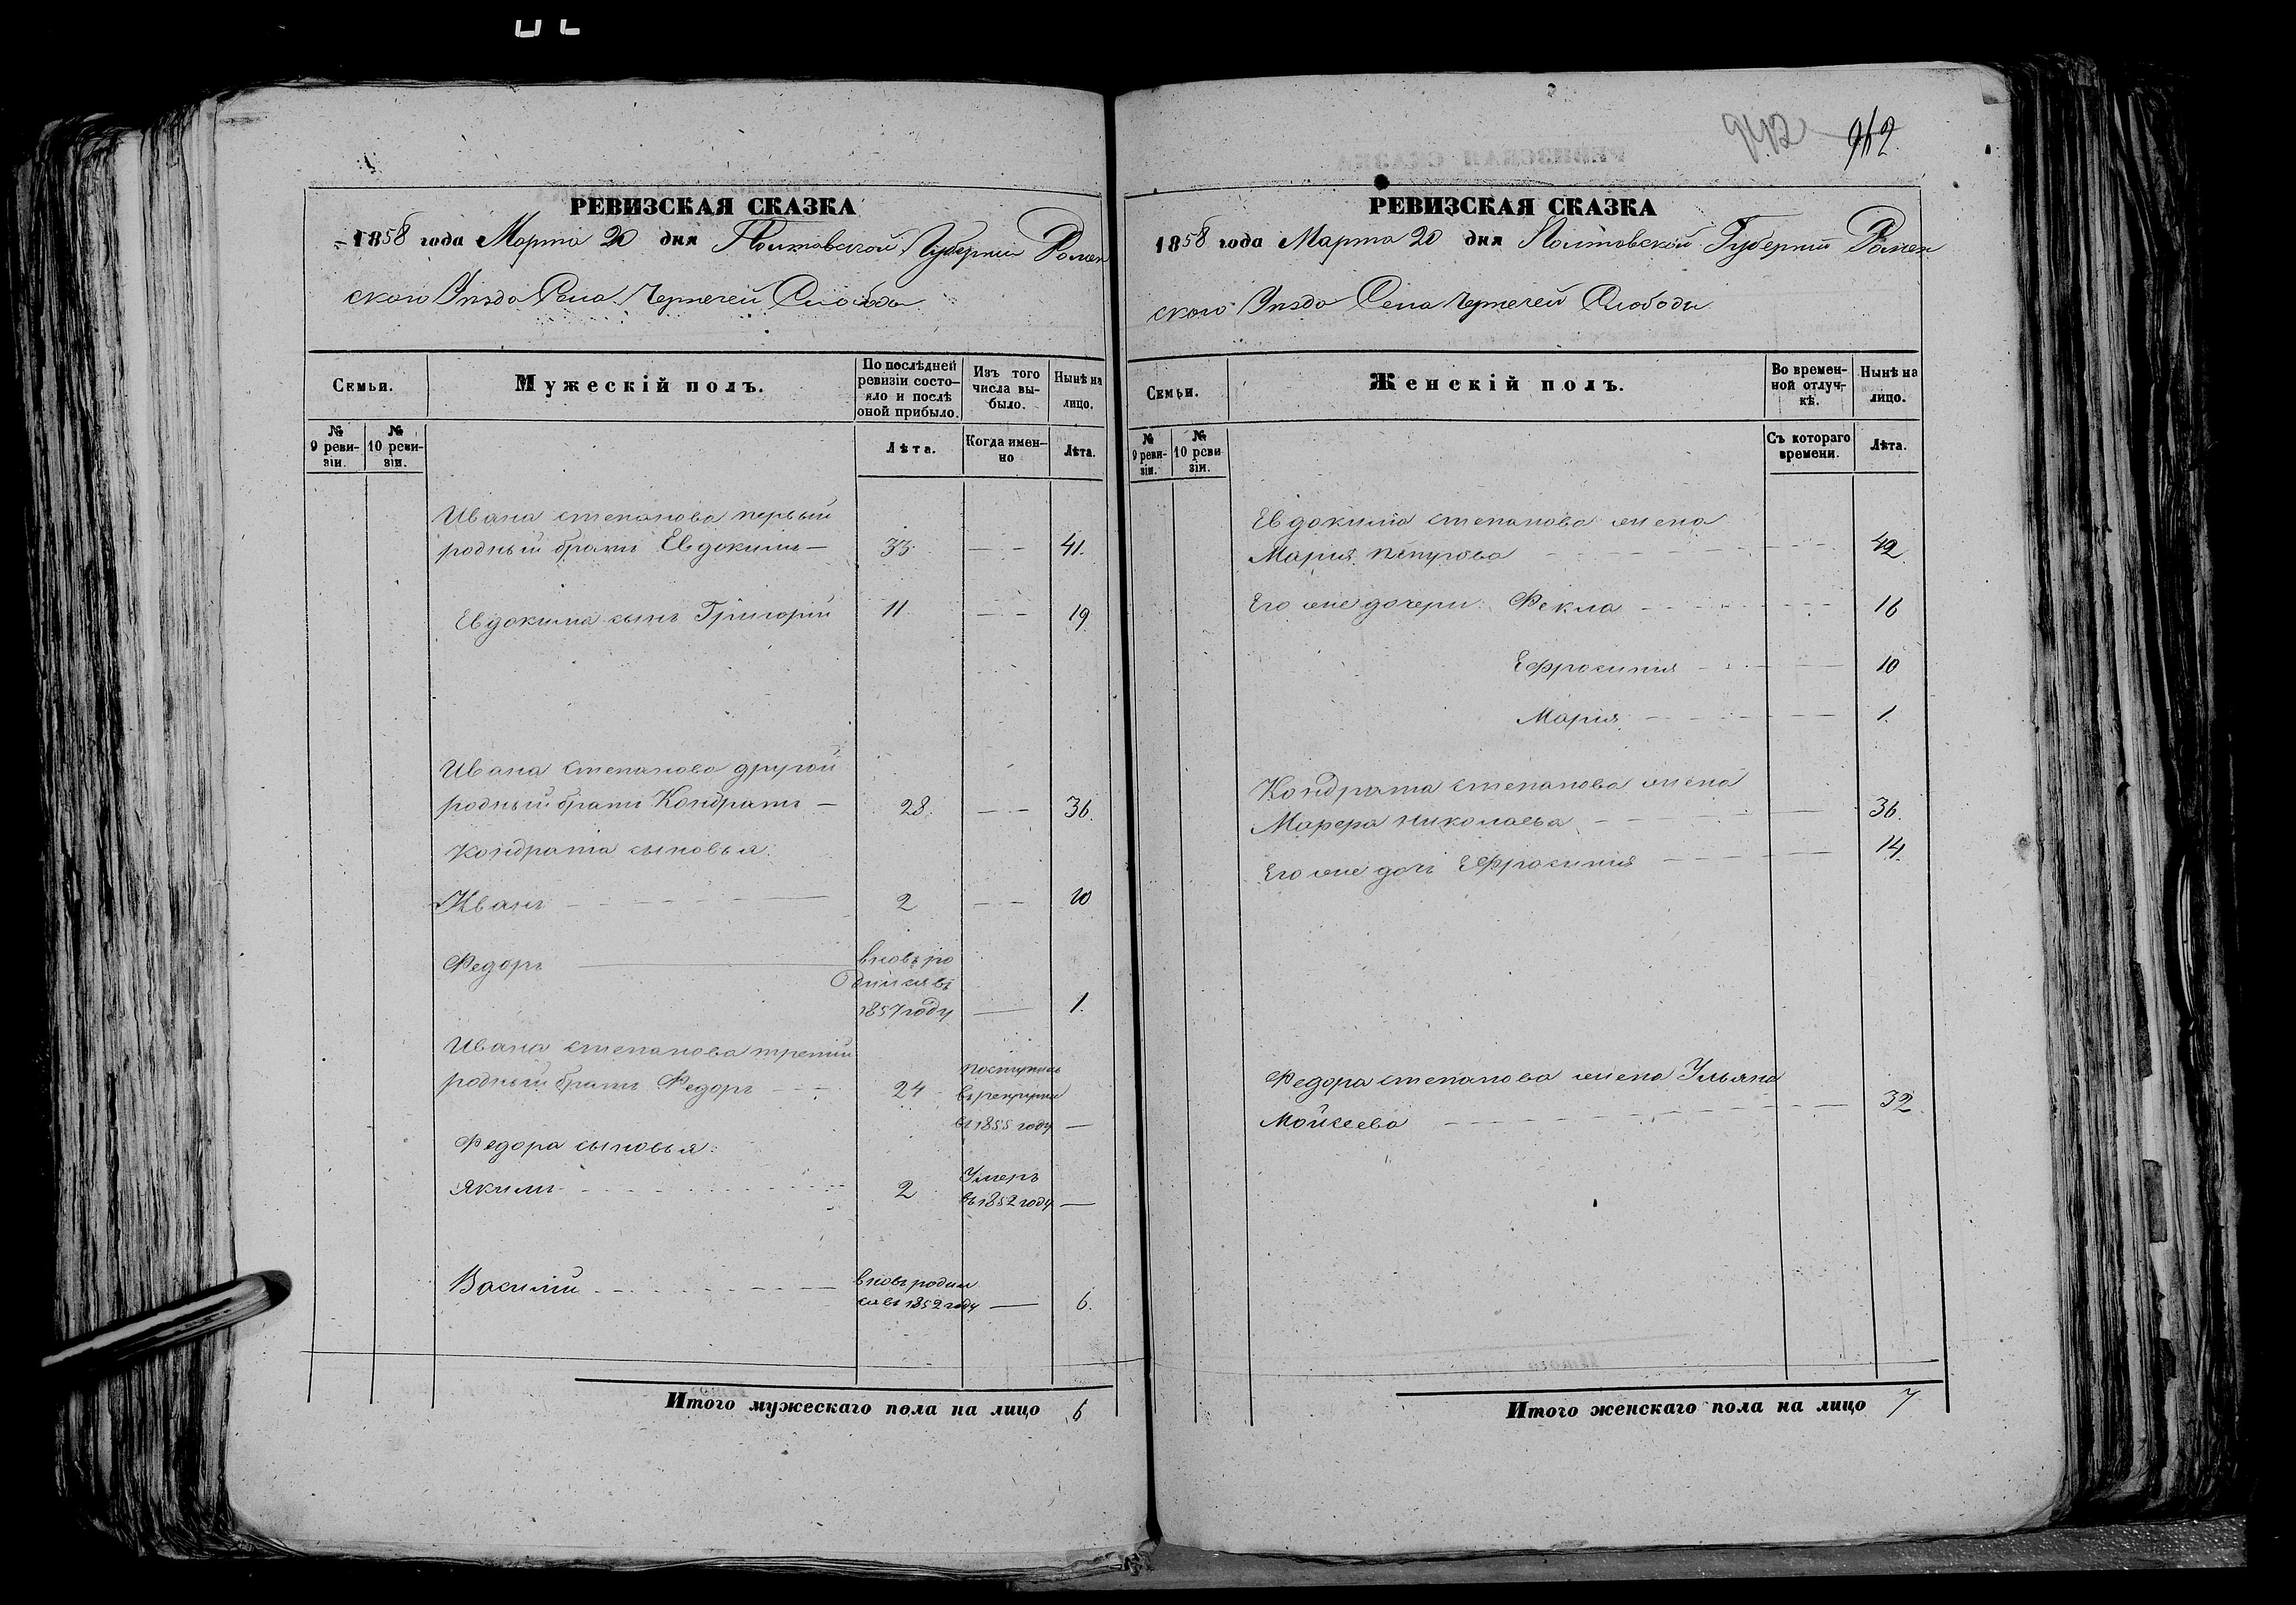 942 962
РЕВИЗСКАЯ СКАЗКА
1858 года Марта 20 дня Полтавской Губернии Ромен
ского Уезда Села Чернечей Слободы
Семьи.
Мужескій полъ.
По послѣдней
ревизіи состо-
яло и послѣ
оной прибыло.
Изъ того
числа вы-
было.
Нынѣ на
лицо.
№
9 реви-
зіи.
№
10 реви-
зіи.
Лѣта.
Когда имен-
но
Лѣта.
Ивана степанова первый
родный братъ Евдокимъ — 33 — — 41.
Евдокима сынъ Григорій 11 — — 19
Ивана степанова другой
родный братъ Кондратъ — 28. — — 36.
Кондрата сыновья:
Иванъ 2 — — 10
Федоръ вновь ро
дился въ
1857 году — 1.
Ивана степанова третій
родный братъ Федоръ 24 поступилъ
въ рекруты
въ 1855 году —
Федора сыновья:
Якимъ 2 Умеръ
въ 1852 году —
Василій вновь родил
ся въ 1852 году — 6.
Итого мужескаго пола на лицо 6
РЕВИЗСКАЯ СКАЗКА
1858 года Марта 20 дня Полтавской Губерніи Ромен
ского Уезда Села Чернечей Слободы
Семьи.
Женскій полъ.
Во времен-
ной отлуч-
кѣ.
Нынѣ на
лицо.
№
9 реви-
зіи.
№
10 реви
зіи.
Съ котораго
времени.
Лѣта.
Евдокима степанова жена
Мария 42
Его же дочери: Фекла 16
Ефросиния 10
Мария 1.
Кондрата степанова жена
Марфра николаева 36.
Его же дочь Ефросиния 14.
Федора степанова жена Ульяна
Мойсеева 32.
Итого женскаго пола на лицо 7